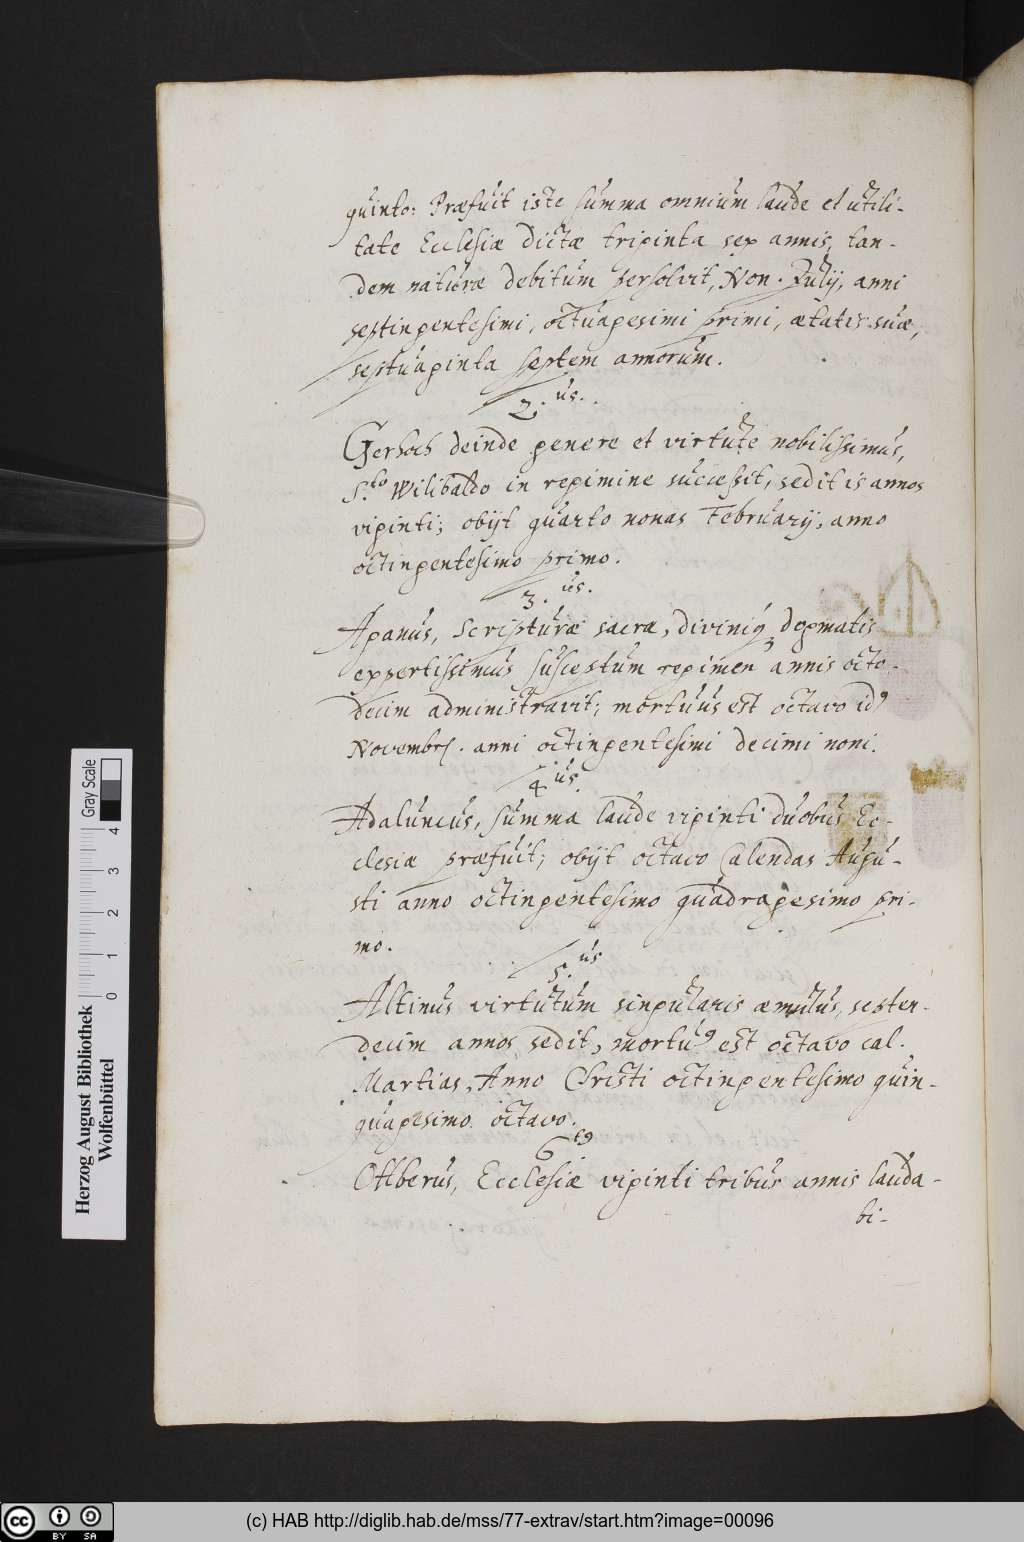 quinto: Præfuit iste summa omnium laude et utili-
tate Ecclesiæ dictæ triginta sex annis, tan-
dem naturæ debitum persolvit, Non. Julij, anni
septingentesimi, octuagesimi primi, ætatis suæ,
septuaginta septem annorum.
2.us.
Gerhoch deinde genere et virtute nobilissimus,
S.to Wilibaldo in regimine successit, sedit is annos
viginti; obijt quarto nonas February, anno
octingentesimo primo.
3.us.
Aganus, Scripturæ sacræ, diviniq dogmatis
expertissimus susceptum regimen annis octo-
decim administravit; mortuus est octavo id9
Novembr. anni octingentesimi decimi noni.
4us.
Adaluncus, summa laude viginti duobus Ec-
clesiæ præfuit; obijt octavo Calendas Augu-
sti anno octingentesimo quadragesimo pri-
mo.
5.us
Altinus virtutum singularis æmulus, septen-
decim annos sedit, mortu9 est octavo cal.
Martias, Anno Christi octingentesimo quin-
quagesimo octavo.
6t9
Otlberus, Ecclesiæ viginti tribus annis lauda-
bi-
Herzog August Bibliothek
Wolfenbüttel
0 1 2 3 4
Gray Scale
cc BY SA
(c) HAB http://diglib.hab.de/mss/77-extrav/start.htm?image=00096